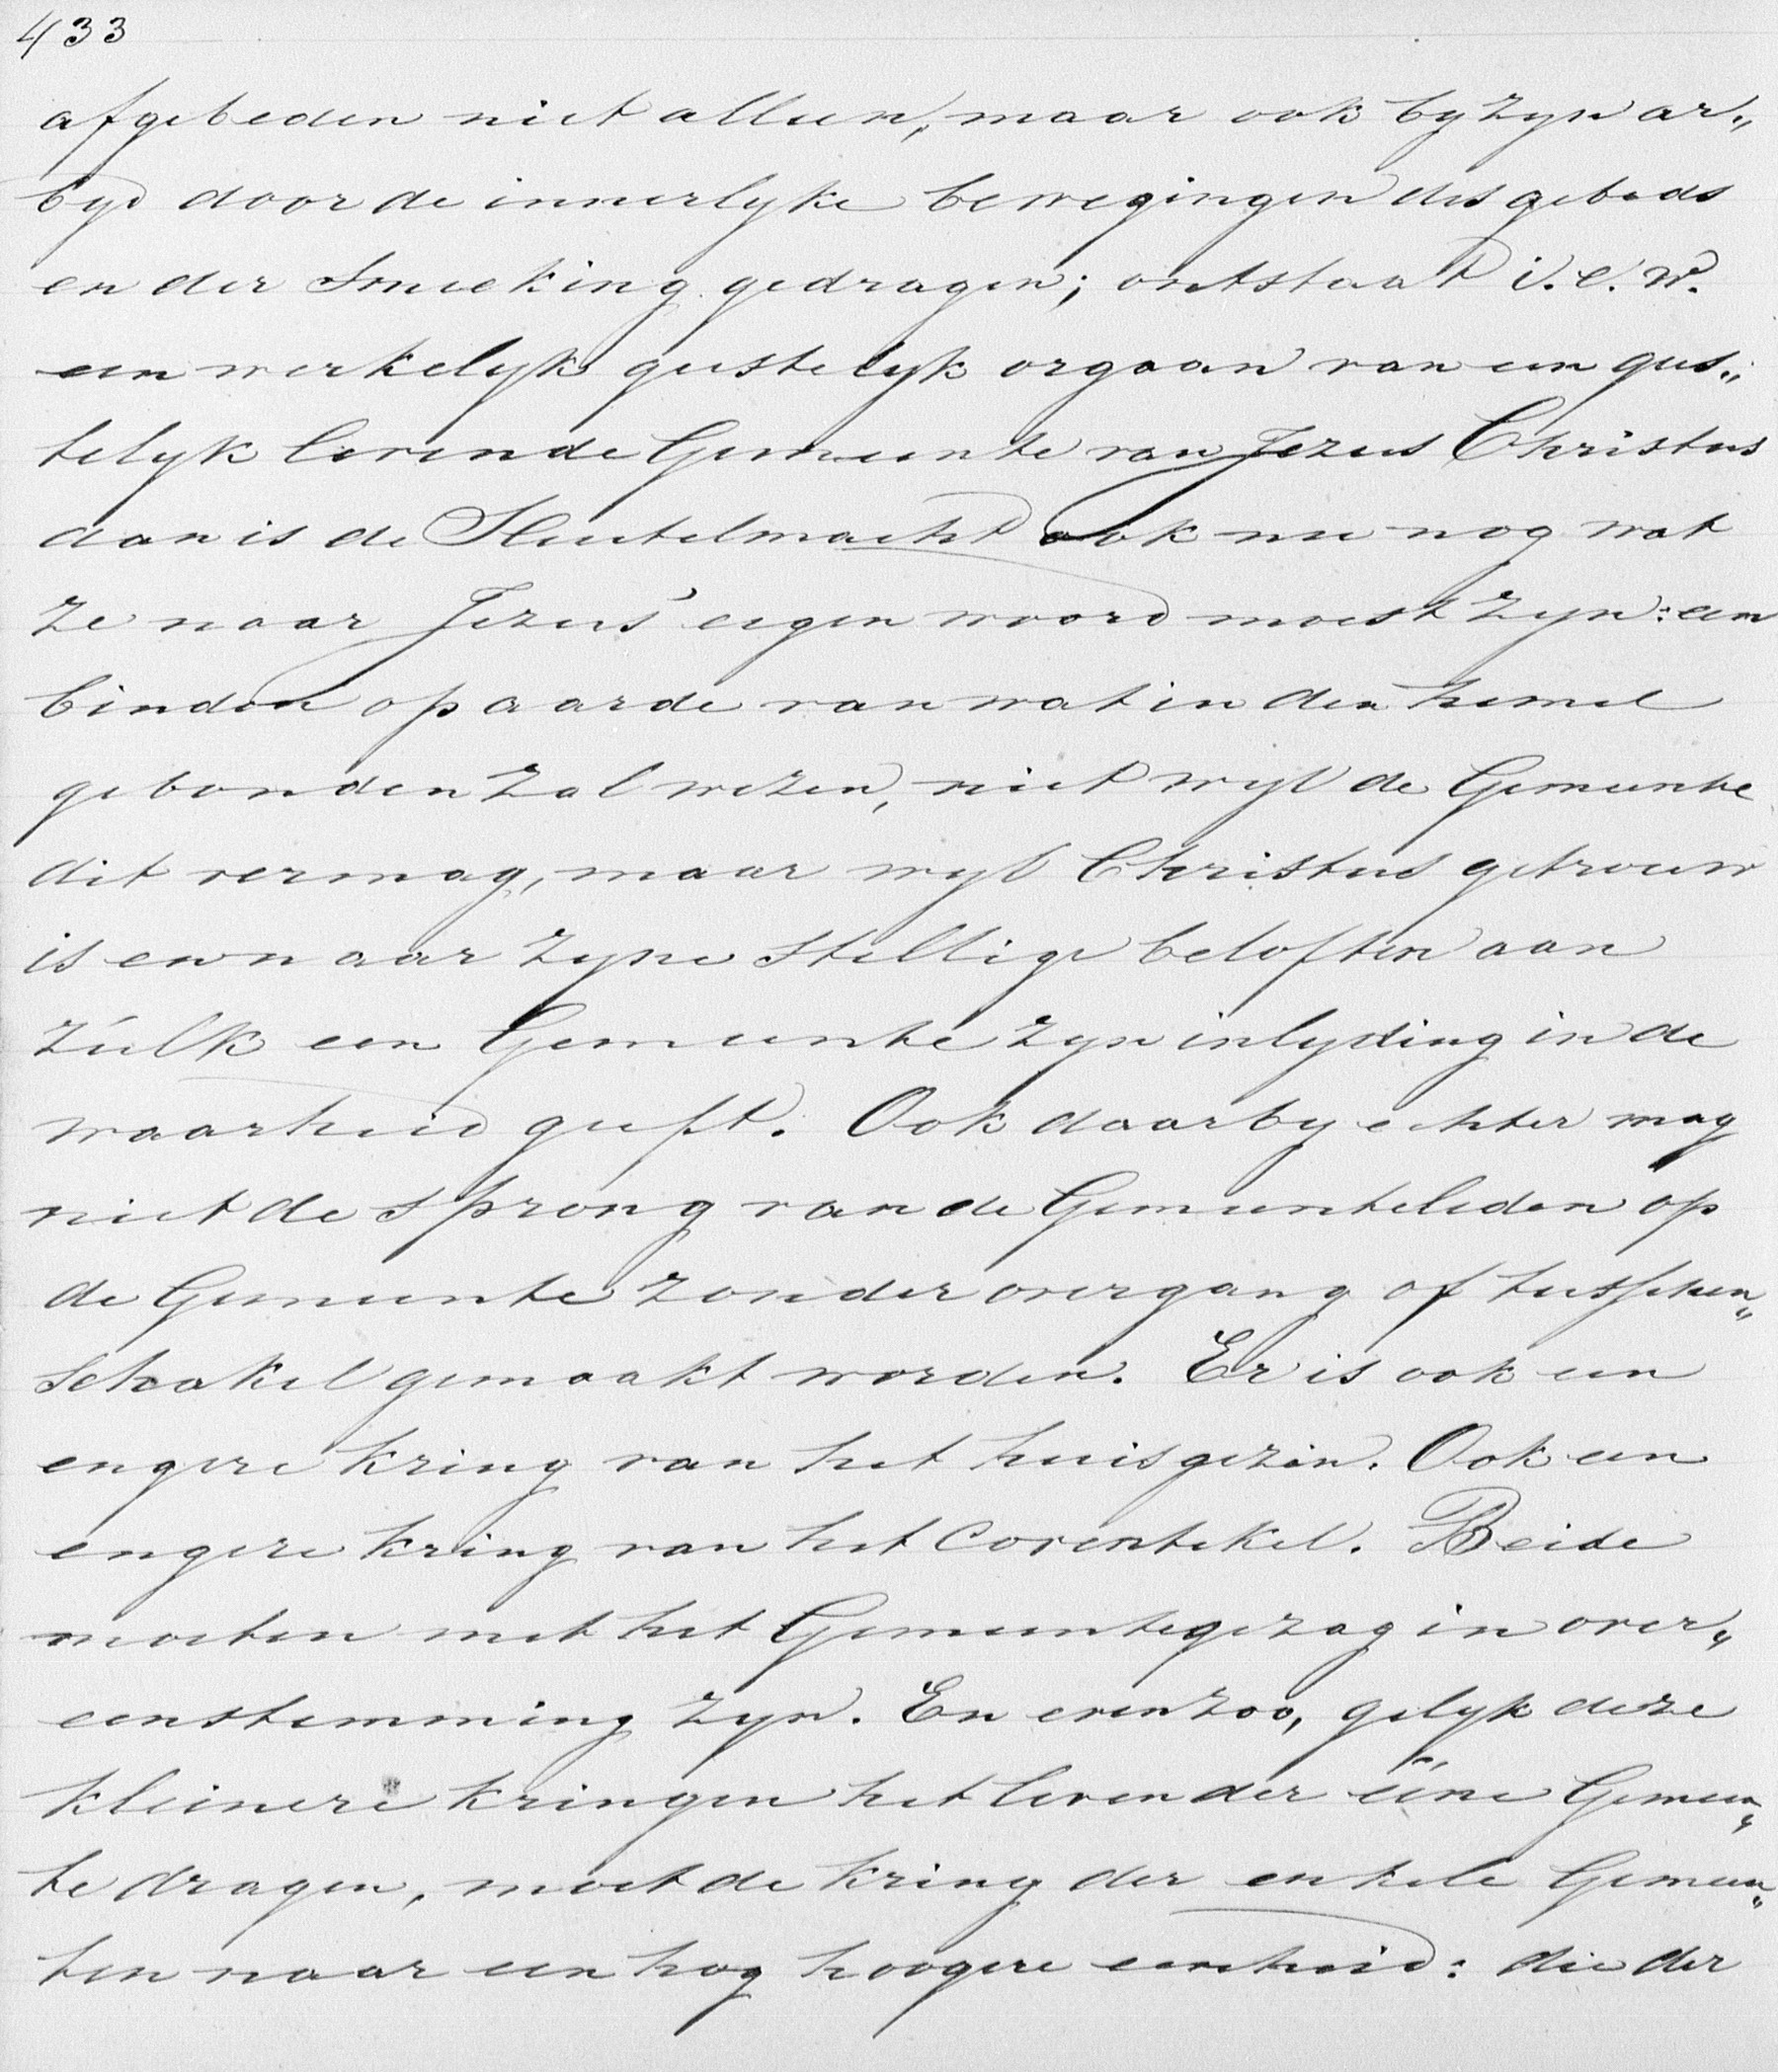 433
afgebeden niet alleen, maar ook by zyn ar„
byd door de innerlyke bewegingen des gebeds
en der Smeeking gedragen; ontstaat i.e.w.
een werkelyk geestelyk orgaan van een gees„
telyk levende Gemeente van Jezus Christus
dan is de Sleutelmacht ook nu nog wat
ze naar Jezus' eigen woord moest zyn: een
binden op aarde van wat in den hemel
gebonden zal wezen, niet wyl de Gemeente
dit vermag, maar wyl Christus getrouw
is en naar zyne stellige beloften aan
zúlk een Gemeente zyn inlyding in de
waarheid geeft. Ook daarby echter mag
niet de sprong van de Gemeenteleden op
de Gemeente zonder overgang of tusschen„
schakel gemaakt worden. Er is ook een
engere kring van het huisgezin. Ook een
engere kring van het Coventikel. Beide
moeten met het Gemeentegezag in over„
eenstemming zyn. En evenzoo, gelyk deze
kleinere kringen het leven der ééne Gemeen„
te dragen, moet de kring der enkele Gemeen„
ten naar een nog hoogere eenheid: die der